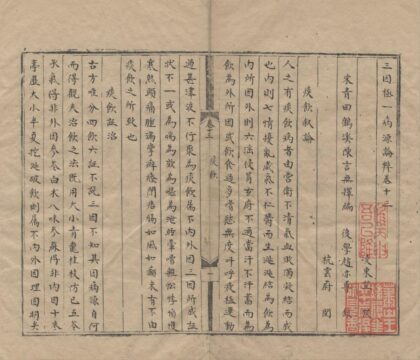 三因極一病源論粹卷十三
宋青田鶴溪陳言無擇編 後學趙亦
東堂
杭雲府 閱
痰飲敘論
人之有痰飲病者由榮衛不清氣血濁凝結而成
也內則七情擾亂藏氣不行鬱而生涎涎結為飲為
內所因外則六淫侵冒玄府不通當汗不泄
飲為外所因或飲食過多嗜慾無度叫呼疲極運動
卷十三 痰飲 一
過差津液不行聚為痰飲屬不內外因三因所成證
狀不一或為喘或為咳為嘔為泄暈眩嘈煩忪悸
寒熱頭痛腫滿攣癖癃閉痞膈如風如癲未有不由
痰飲之所致也
痰飲證治
古方唯分四飲六證不說三因不知其因病源自何
而得觀夫治飲之法既用大小青龍桂枝防己五苓
承氣得非外因參苓白朮八味參蘇得非內因十棗
葶藶大小半夏控涎破飲則屬不內外因理固明矣